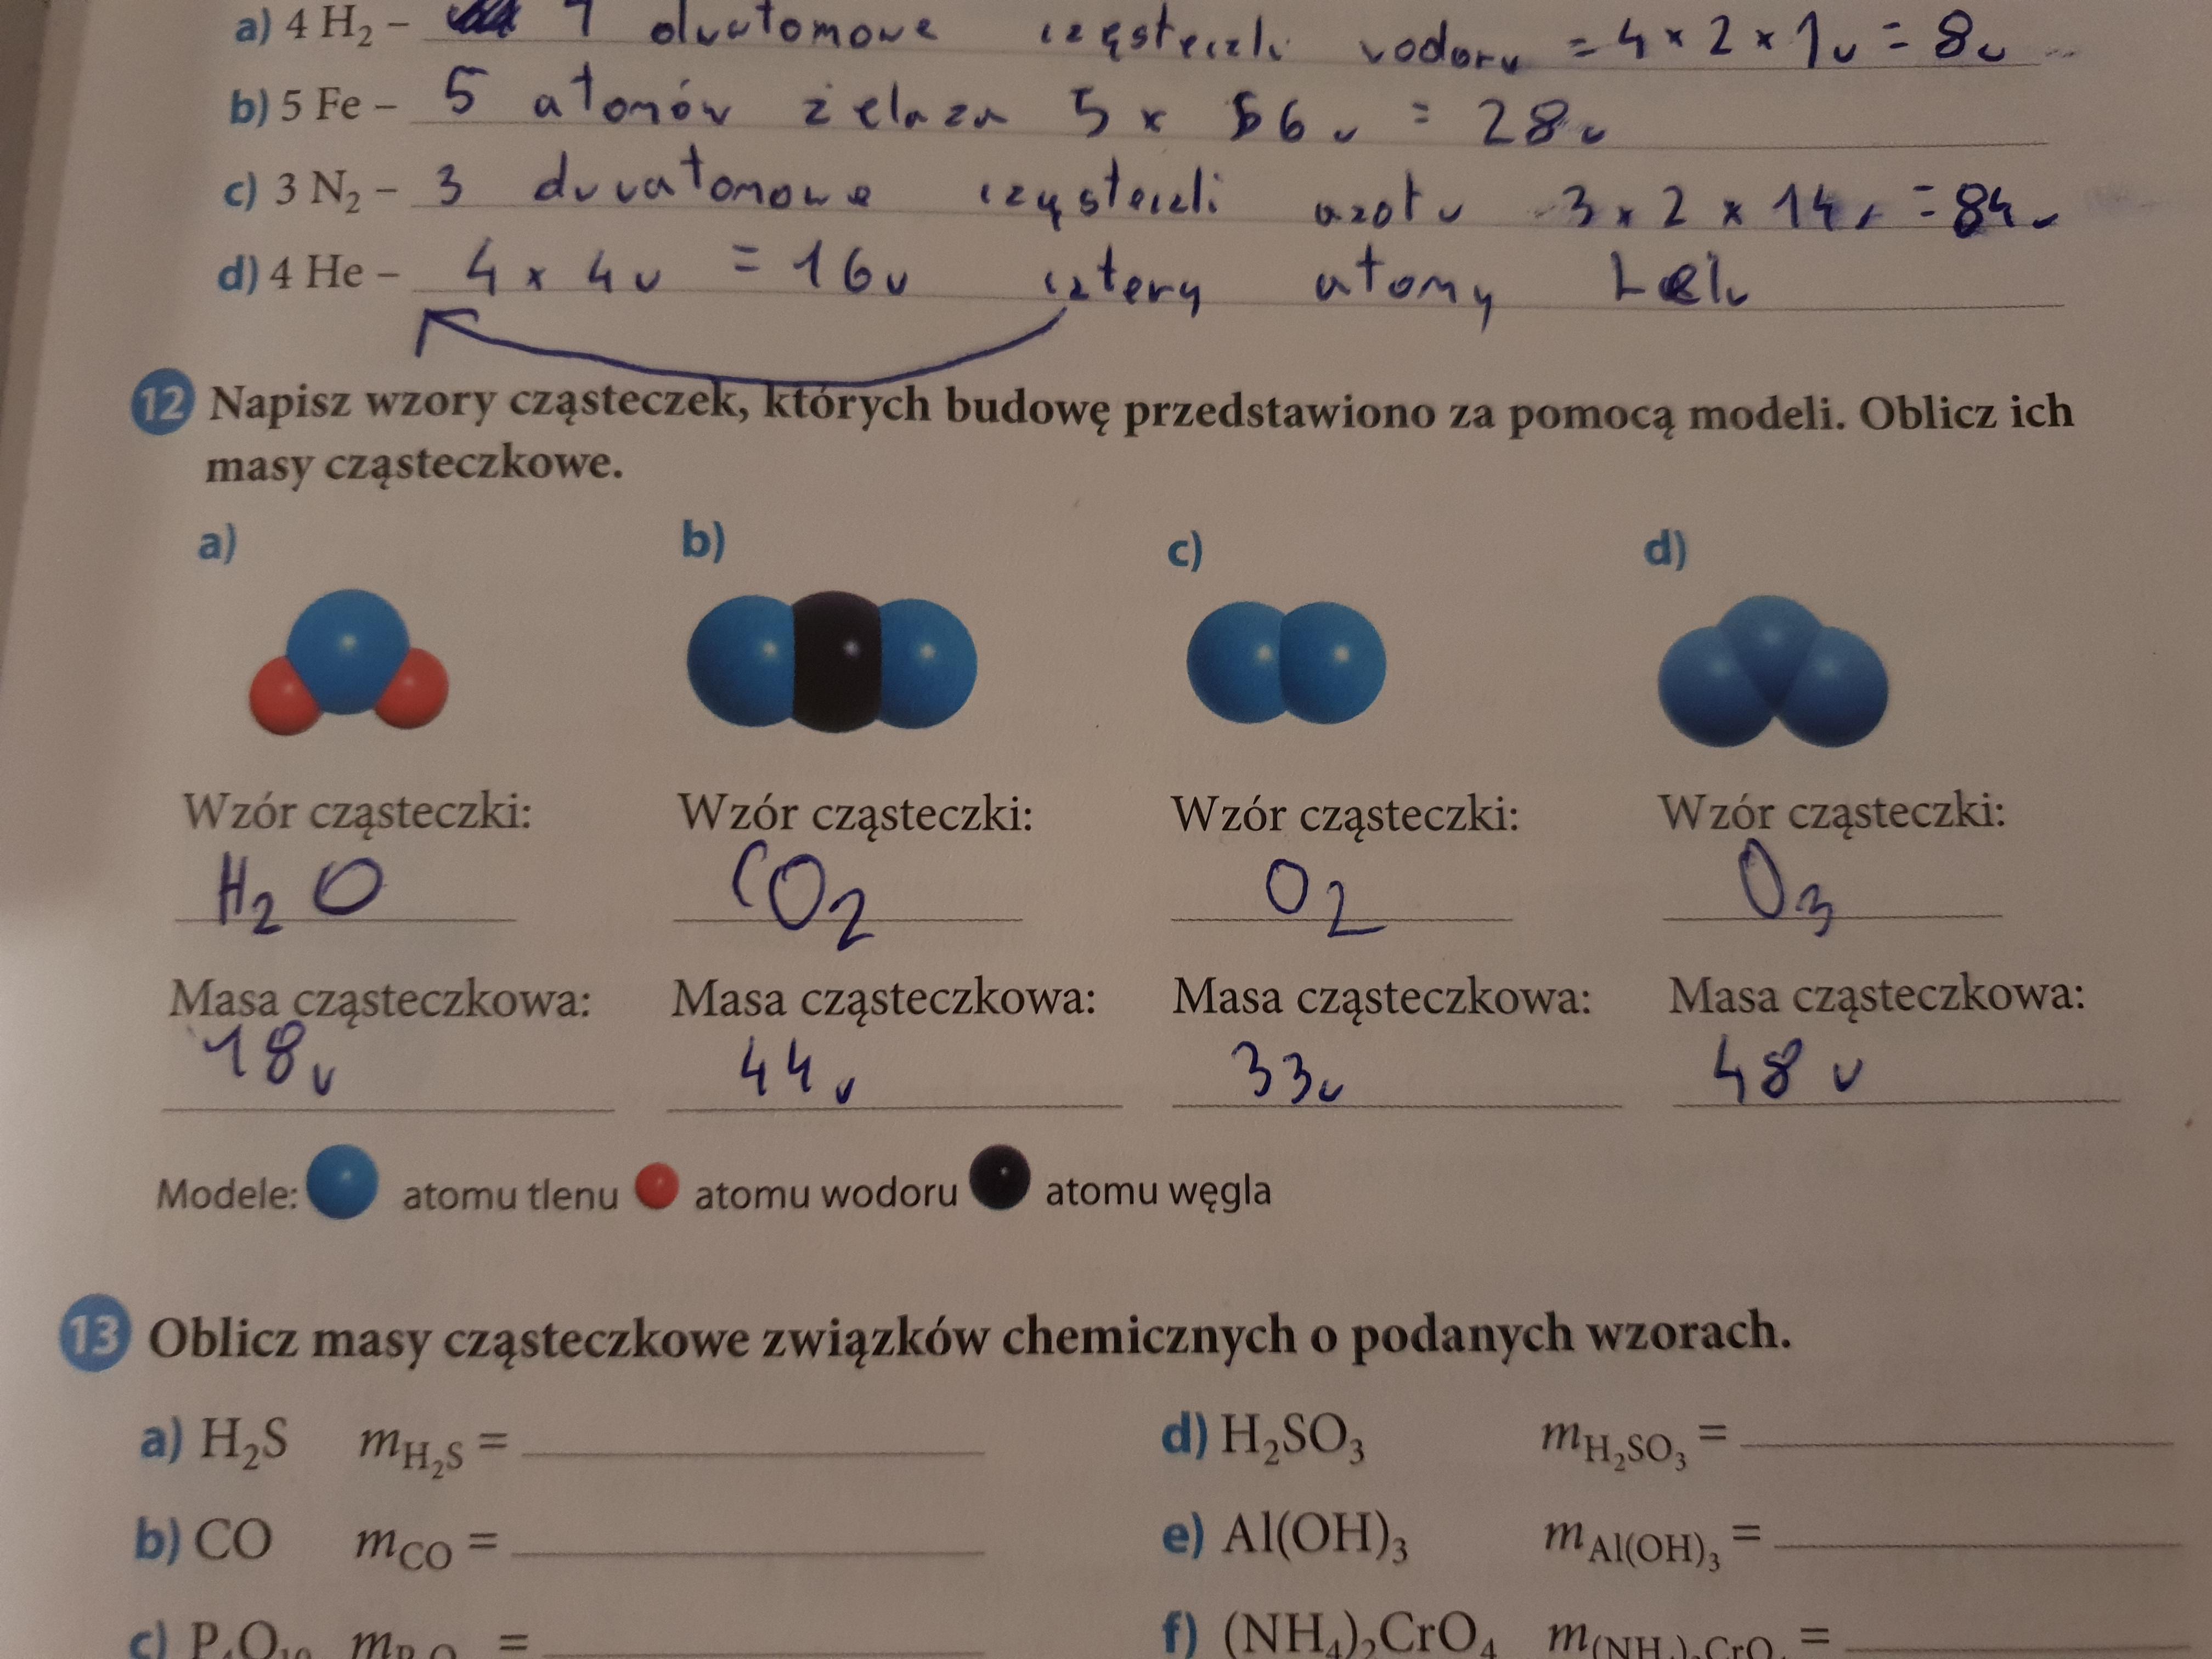 a) 4 H₂ – 4 dwuatomowe cząsteczki wodoru = 4 x 2 x 1u = 8u
b) 5 Fe – 5 atomów żelaza 5 x 56u = 28u
c) 3 N₂ – 3 dwuatomowe cząsteczki azotu 3 x 2 x 14u = 84u
d) 4 He – 4 x 4u = 16u cztery atomy Helu
12 Napisz wzory cząsteczek, których budowę przedstawiono za pomocą modeli. Oblicz ich
masy cząsteczkowe.
a) b) c) d)
Wzór cząsteczki: Wzór cząsteczki: Wzór cząsteczki: Wzór cząsteczki:
H₂O CO₂ O₂ O₃
Masa cząsteczkowa: Masa cząsteczkowa: Masa cząsteczkowa: Masa cząsteczkowa:
18u 44u 33u 48u
Modele: atomu tlenu atomu wodoru atomu węgla
13 Oblicz masy cząsteczkowe związków chemicznych o podanych wzorach.
a) H₂S m_H₂S = d) H₂SO₃ m_H₂SO₃ =
b) CO m_CO = e) Al(OH)₃ m_Al(OH)₃ =
c) P₄O₁₀ m = f) (NH₄)₂CrO₄ m_(NH₄)₂CrO₄ =